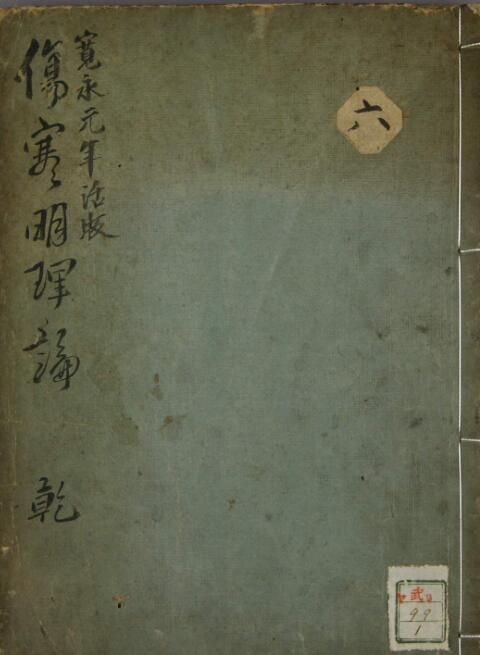 六
寛永元年活版
傷寒明理論 乾
武
99
1